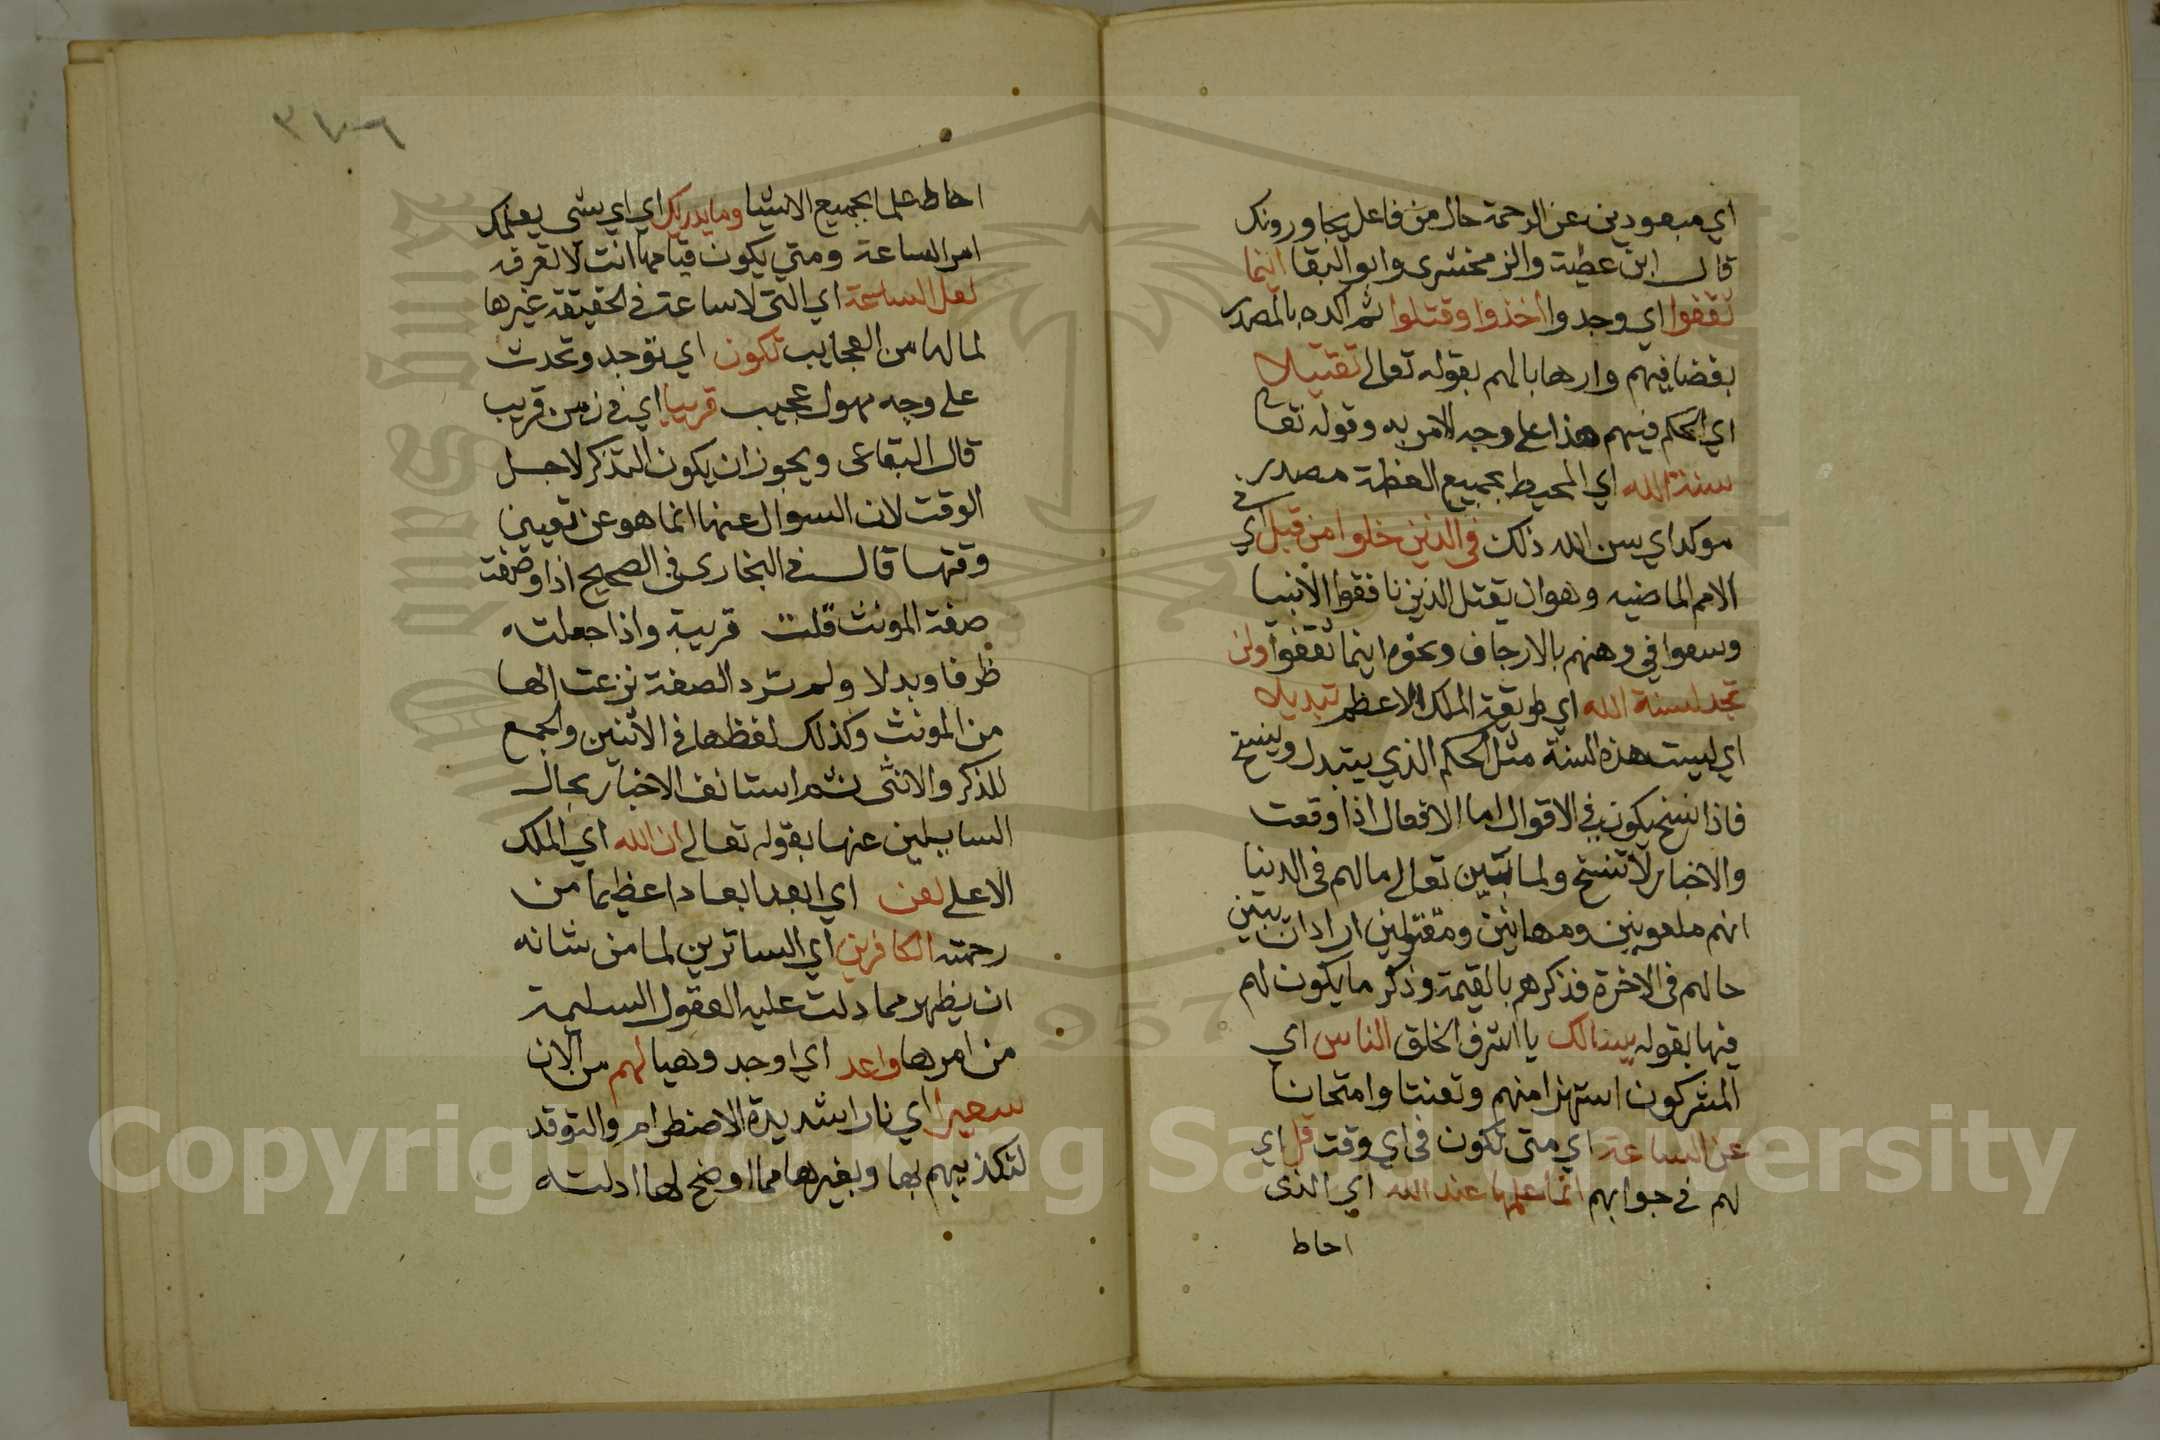 اي مبعودين عن الرحمة حال من فاعل يجاورونك
قال ابن عطية والزمخشري وابو البقا اينما
ثقفوا اي وجدوا اخذوا وقتلوا ثم اكده بالمصدر
بغضا فيهم وارهابا لهم بقوله تعالى تقتيلا
اي الحكم فيهم هذا على وجه الامر به وقوله تعا
سنة الله اي المحيط بجميع العظمة مصدر
موكد اي سن الله ذلك في الذين خلوا من قبل اي في
الامم الماضيه وهو ان يقتل الذين نافقوا الانبيا
وسعوا في وهنهم بالارجاف ونحوه اينما ثقفوا ولن
تجد لسنة الله اي طريقة الملك الاعظم تبديلا
اي ليست هذه السنة مثل الحكم الذي يتبدل وينسخ
فاذا نسخ يكون في الاقوال اما الافعال اذا وقعت
والاخبار لا تنسخ ولما بين تعالى مالهم في الدنيا
انهم ملعونين ومهانين ومقتولين اراد ان يبين
حالهم في الاخرة فذكرهم بالقيمة وذكر ما يكون لهم
فيها بقوله يسالك يا اشرف الخلق الناس اي
المشركون استهزا منهم وتعنتا وامتحانا
عن الساعة اي متى تكون في اي وقت قل اي
لهم في جوابهم انما علمها عند الله اي الذي
احاط
٣٧٦
احاط علما بجميع الاشيا وما يدريك اي اي شي يعلمك
امر الساعة ومتى يكون قيامها انت لا تعرفه
لعل الساعة اي التي لا ساعة في الحقيقة غيرها
لما لها من العجايب تكون اي توجد وتحدث
على وجه مهول عجيب قريبا اي في زمن قريب
قال البقاعي ويجوز ان يكون التذكر لاجل
الوقت لان السوال عنها انما هو عن تعيين
وقتها قال في البخاري في الصحيح اذا وصفت
صفة المونث قلت قريبة واذا جعلته
ظرفا وبدلا ولم ترد الصفة نزعت الها
من المونث وكذلك لفظها في الاثنين والجمع
للذكر والانثى ثم استانف الاخبار بحال
السايلين عنها بقوله تعالى ان الله اي الملك
الاعلى لعن اي ابعد ابعادا عظيما من
رحمته الكافرين اي الساترين لما من شانه
ان يظهر مما دلت عليه العقول السليمة
من امرها واعد اي اوجد وهيا لهم من الان
سعيرا اي نارا شديدة الاضطرام والتوقد
لتكذيبهم بها وبغيرها مما اوضح لها ادلته
Copyright © King Saud University
1957